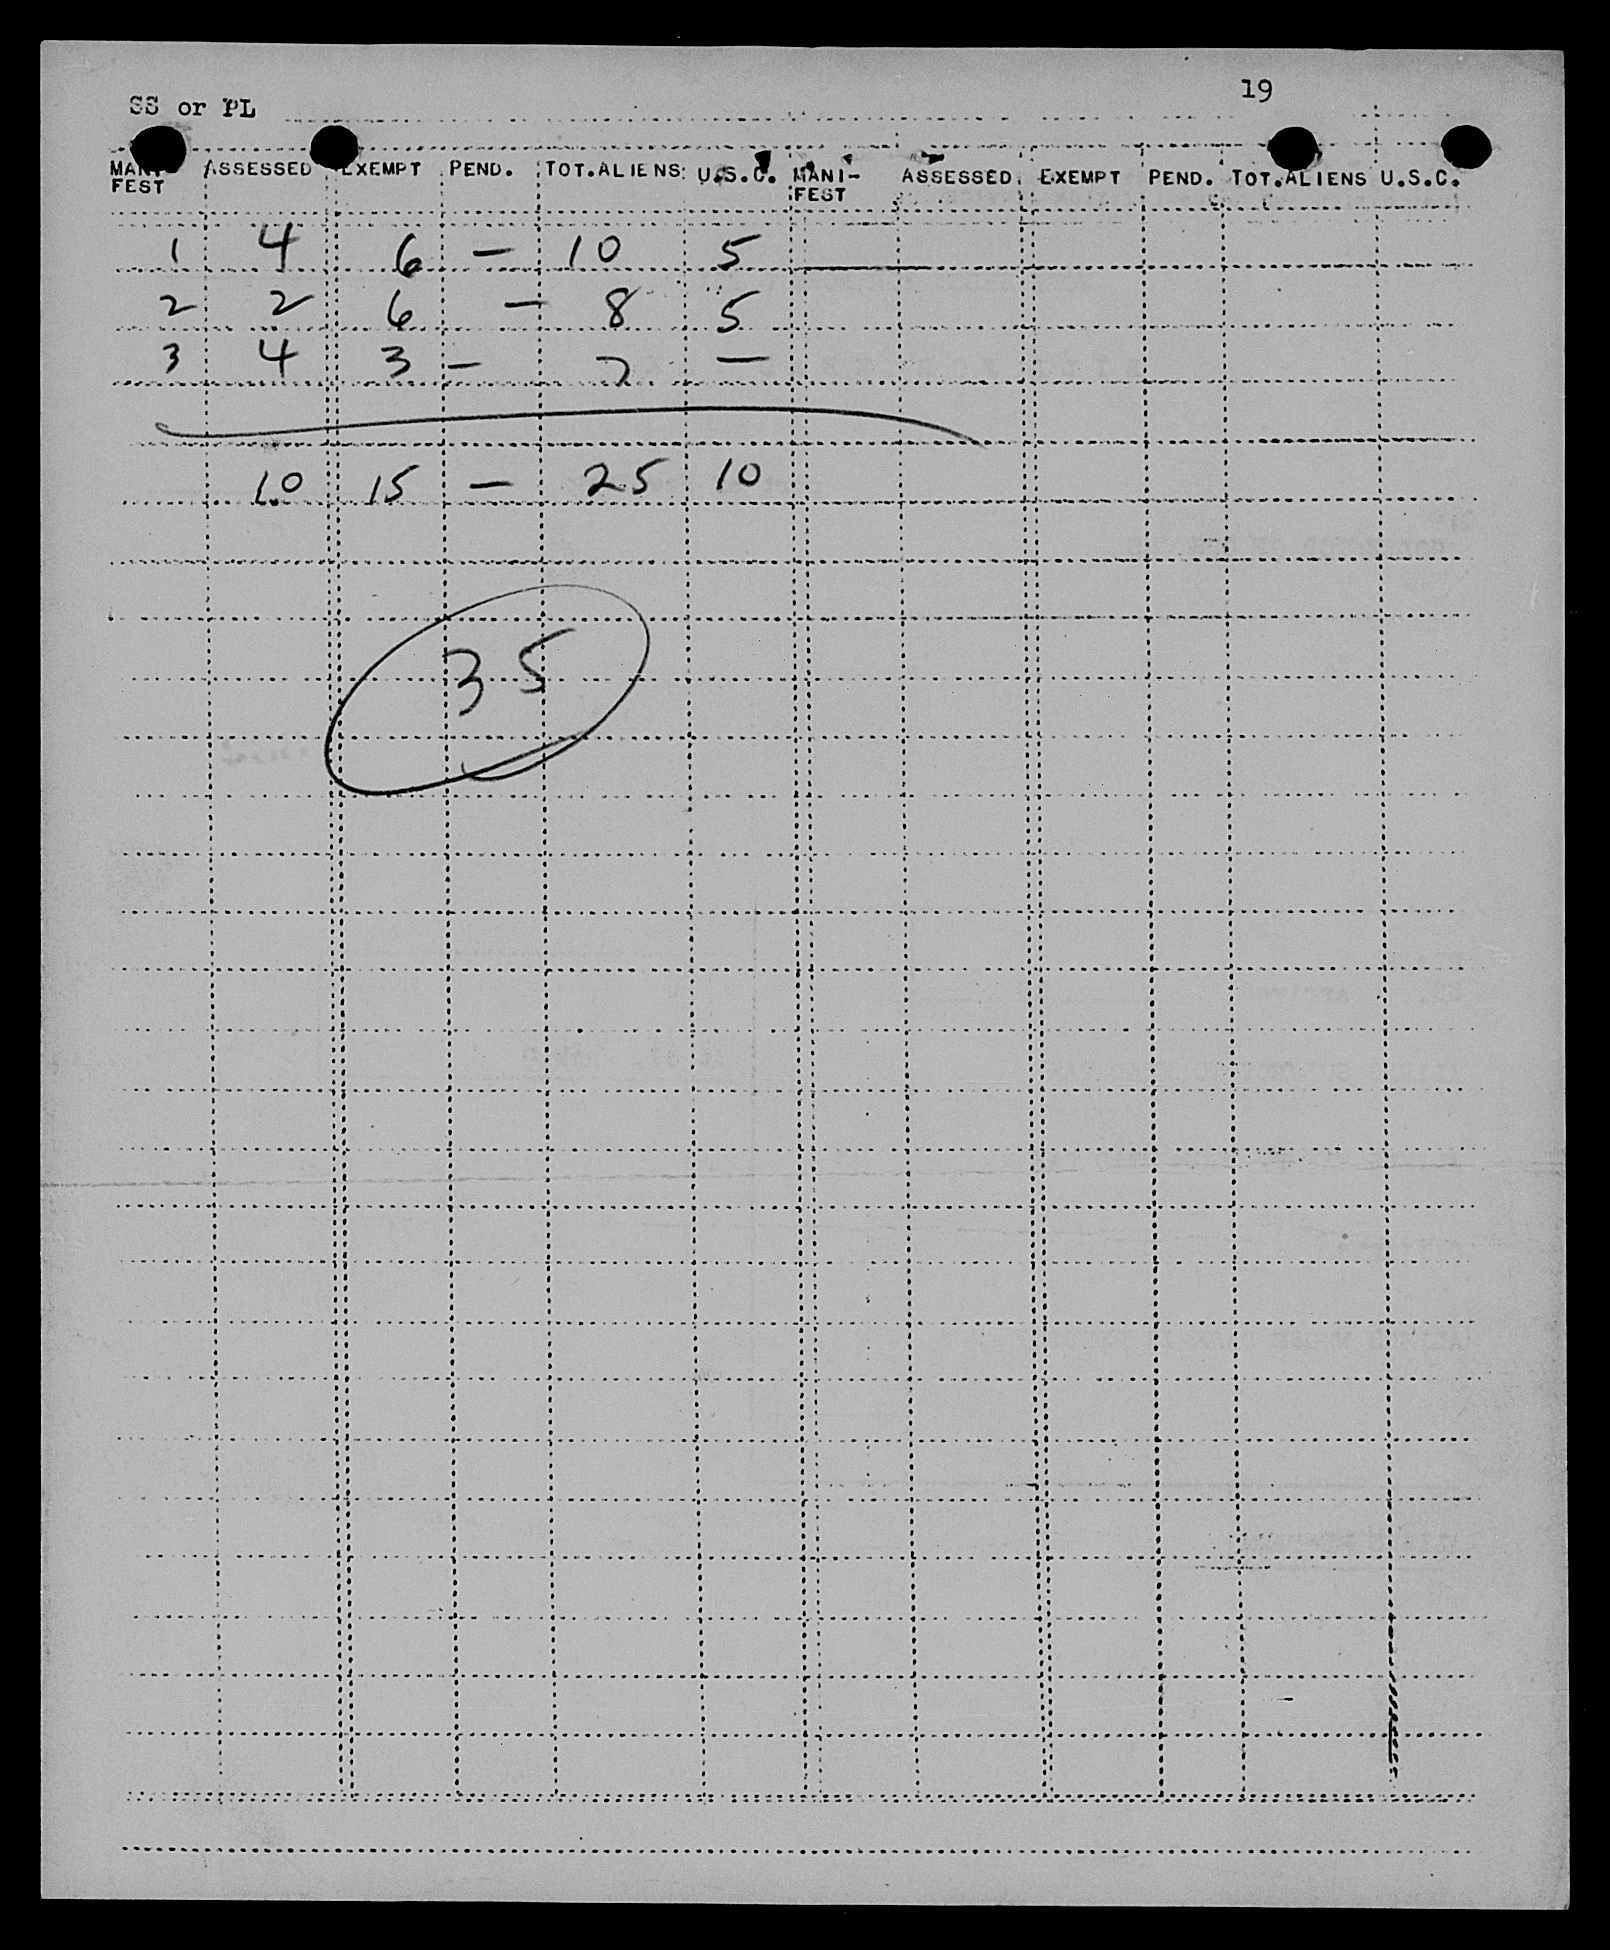 SS or PL 19
MANI- ASSESSED EXEMPT PEND. TOT.ALIENS U.S.C. MANI- ASSESSED EXEMPT PEND. TOT.ALIENS U.S.C.
FEST FEST
1 4 6 — 10 5
2 2 6 — 8 5
3 4 3 — 7 —
10 15 — 25 10
35